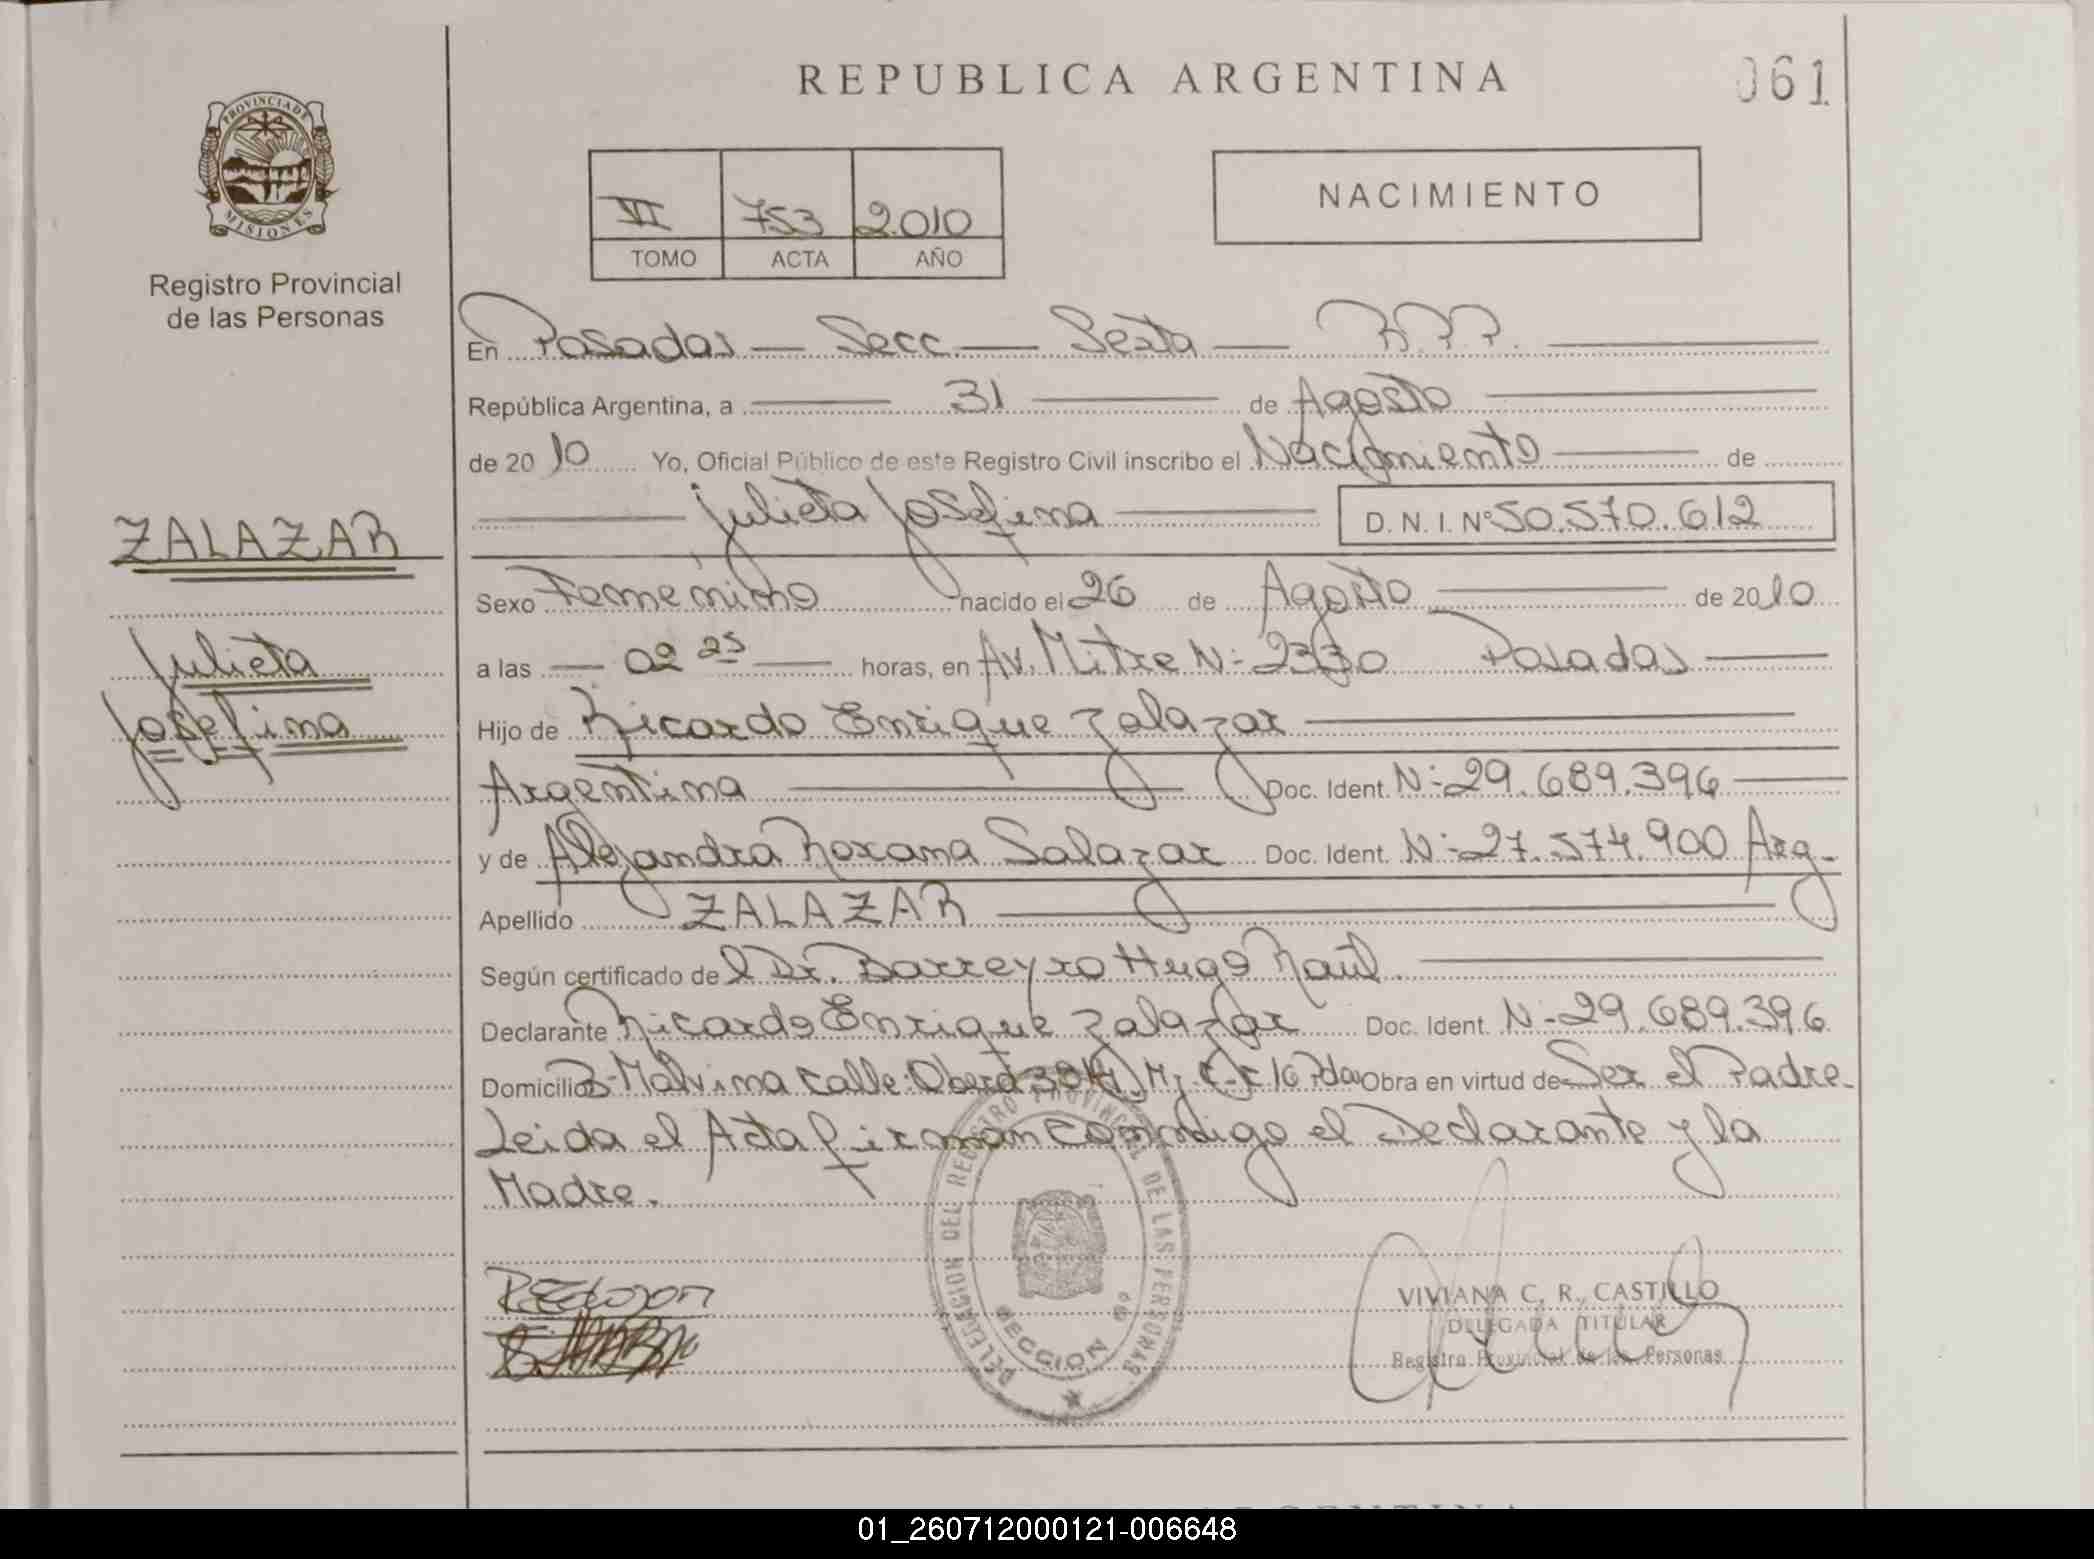 REPUBLICA ARGENTINA
061
PROVINCIA DE
MISIONES
Registro Provincial
de las Personas
VI 753 2.010
TOMO ACTA AÑO
NACIMIENTO
En Posadas — Secc. — Sexta — R.P.P.
República Argentina, a — 31 — de Agosto
de 2010 Yo, Oficial Público de este Registro Civil inscribo el Nacimiento — de
Julieta Josefina D. N. I. Nº 50.570.612
ZALAZAR
Julieta
Josefina
Sexo Femenino nacido el 26 de Agosto — de 2010
a las — 02 25 — horas, en Av. Mitre N: 2330 Posadas —
Hijo de Ricardo Enrique Zalazar
Argentina — Doc. Ident. N: 29.689.396
y de Alejandra Roxana Salazar Doc. Ident. N: 27.574.900 Arg-
Apellido ZALAZAR
Según certificado del Dr. Barreyro Hugo Raúl.
Declarante Ricardo Enrique Zalazar Doc. Ident. N: 29.689.396
Domicilio B- Malvina Calle: Oberá Obra en virtud de Ser el Padre.
Leida el Acta firman conmigo el Declarante y la
Madre.
DELEGACION DEL REGISTRO PROVINCIAL DE LAS PERSONAS
SECCION 6º
VIVIANA C. R. CASTILLO
DELEGADA TITULAR
Registro Provincial de las Personas
01_260712000121-006648